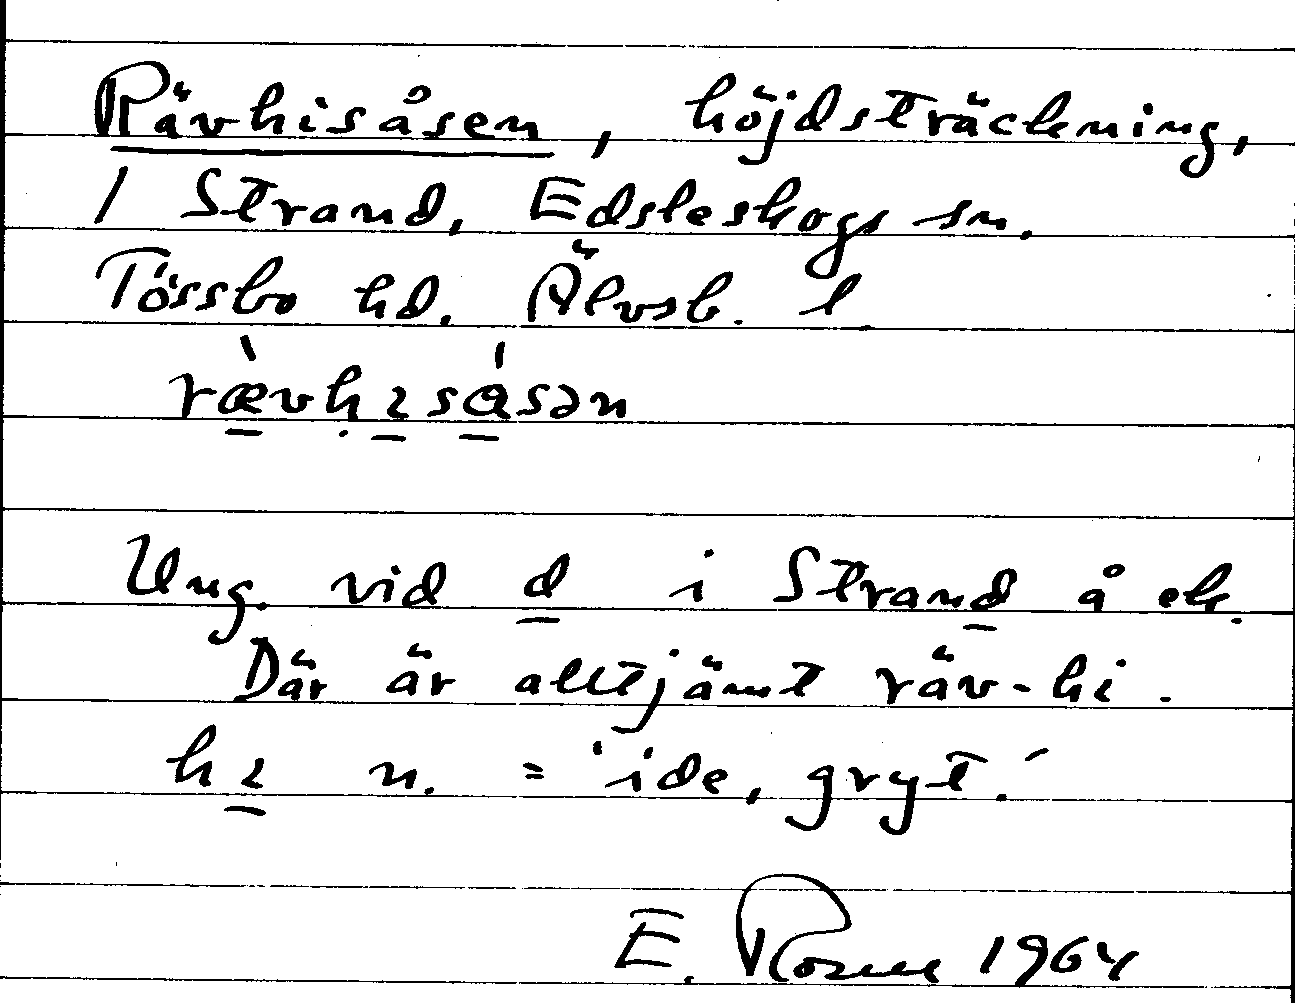 Rävhisåsen, höjdsträckning,
/ Strand, Edsleskogs sn.
Tössbo hd. Älvsb. l.
rævhɩsåsən
Ung. vid d i Strand å ek.
Där är alltjämt räv-hi.
hɩ n. = 'ide, gryt.'
E. Rosen 1964